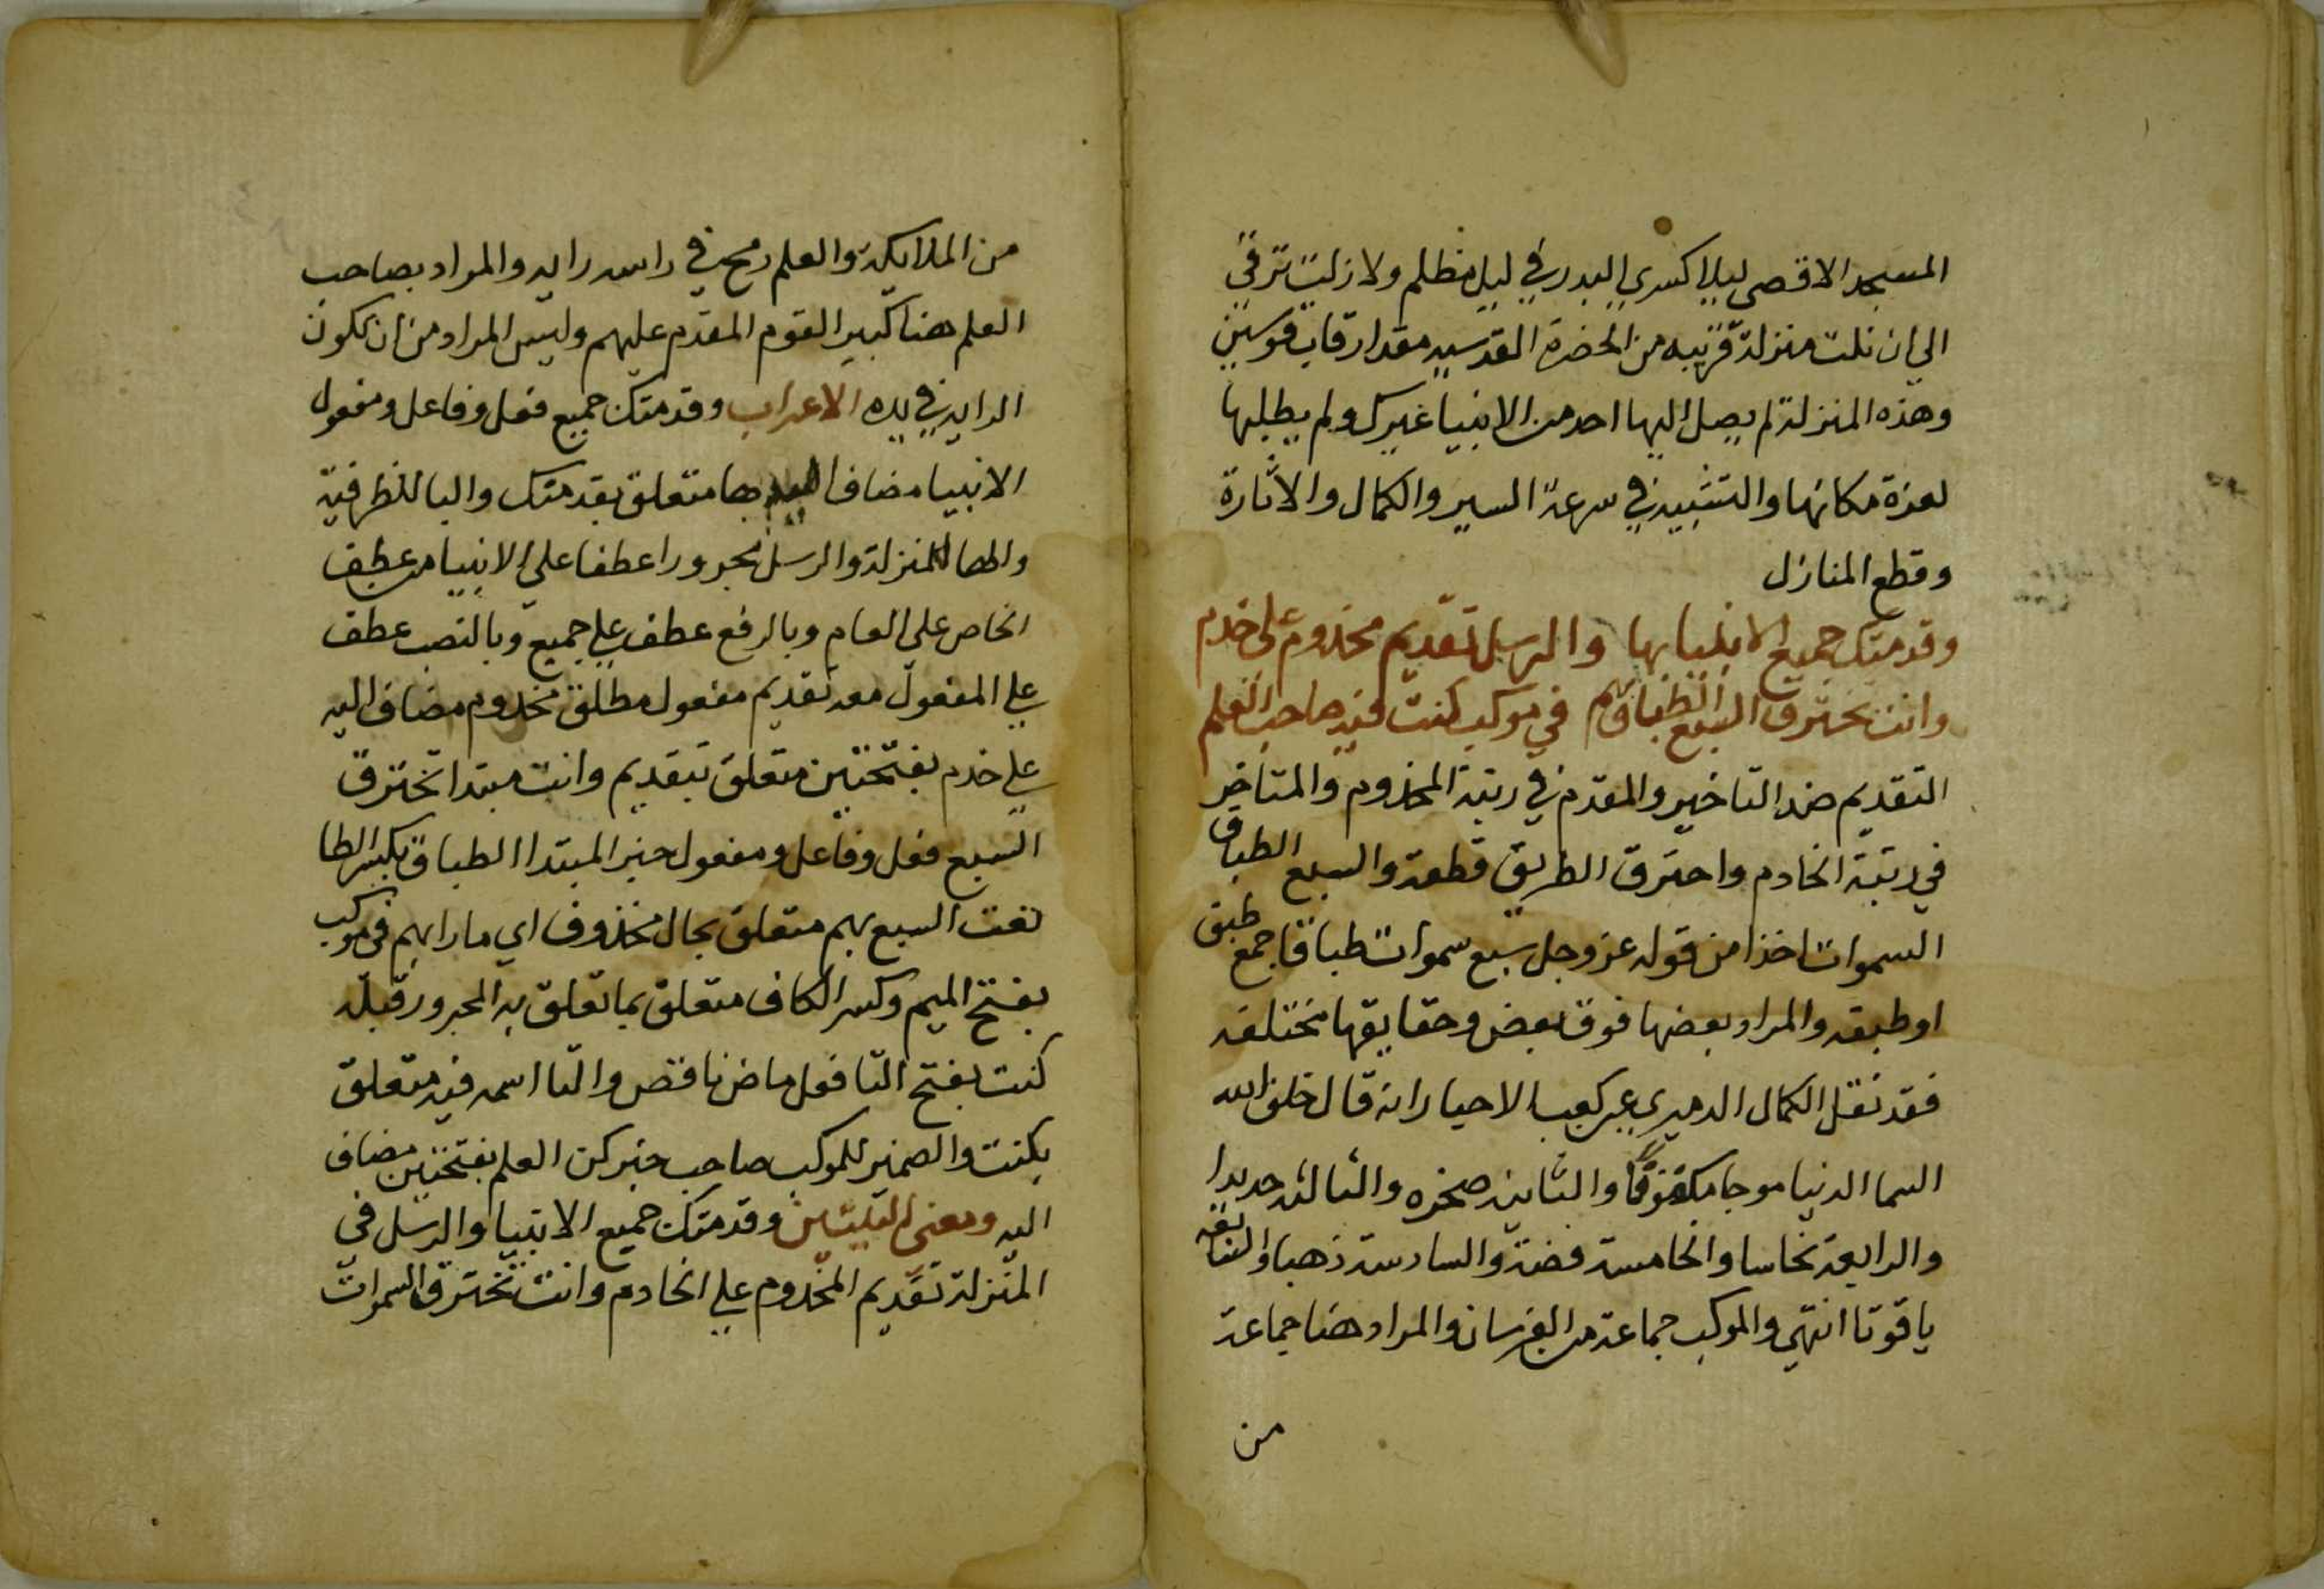 المسجد الاقصى ليلا كسري البدر في ليل مظلم ولا زلت ترقي
الي ان نلت منزلة قريبه من الحضرة القدسيه مقدار قاب قوسين
وهذه المنزلة لم يصل اليها احد من الانبيا غيرك ولم يطلبها
لعزة مكانها والتشبيه في سرعة السير والكمال والاثارة
وقطع المنازل
وقدمتك جميع الانبيا بها والرسل تقديم مخدوم على خدم
وانت تخترق السبع الطباق بهم في موكب كنت فيه صاحب العلم
التقديم ضد التاخير والمقدم في رتبة المخدوم والمتاخر
في رتبة الخادم واخترق الطريق قطعه والسبع الطباق
السموات اخذا من قوله عز وجل سبع سموات طباقا جمع طبق
او طبقه والمراد بعضها فوق بعض وحقايقها مختلفه
فقد نقل الكمال الدميري عن كعب الاحبار انه قال خلق الله
السما الدنيا موجا مكفوفا والثانيه صخره والثالثه حديدا
والرابعة نحاسا والخامسة فضة والسادسة ذهبا والسابعه
ياقوتا انتهي والموكب جماعة من الفرسان والمراد هنا جماعة
من
من الملايكة والعلم رمح في راسه رايه والمراد بصاحب
العلم هنا كبير القوم المقدم عليهم وليس المراد من ان تكون
الرايه في يده الاعراب وقدمتك جميع فعل وفاعل ومفعول
الانبيا مضاف اليه بها متعلق بقدمتك والبا للظرفية
والها للمنزلة والرسل مجرورا عطفا علي الانبيا من عطف
الخاص على العام وبالرفع عطف علي جميع وبالنصب عطف
علي المفعول معه تقديم مفعول مطلق مخدوم مضاف اليه
علي خدم بفتحتين متعلق بتقديم وانت مبتدا تخترق
السبع فعل وفاعل ومفعول خبر المبتدا الطباق بكسر الطا
نعت السبع بهم متعلق بحال محذوف اي مارا بهم في موكب
بفتح الميم وكسر الكاف متعلق بما تعلق به المجرور قبله
كنت بفتح التا فعل ماض ناقص والتا اسمه فيه متعلق
بكنت والضمير للموكب صاحب خبر كن العلم بفتحتين مضاف
اليه ومعنى البيتين وقدمتك جميع الانبيا والرسل في
المنزلة تقديم المخدوم علي الخادم وانت تخترق السموات